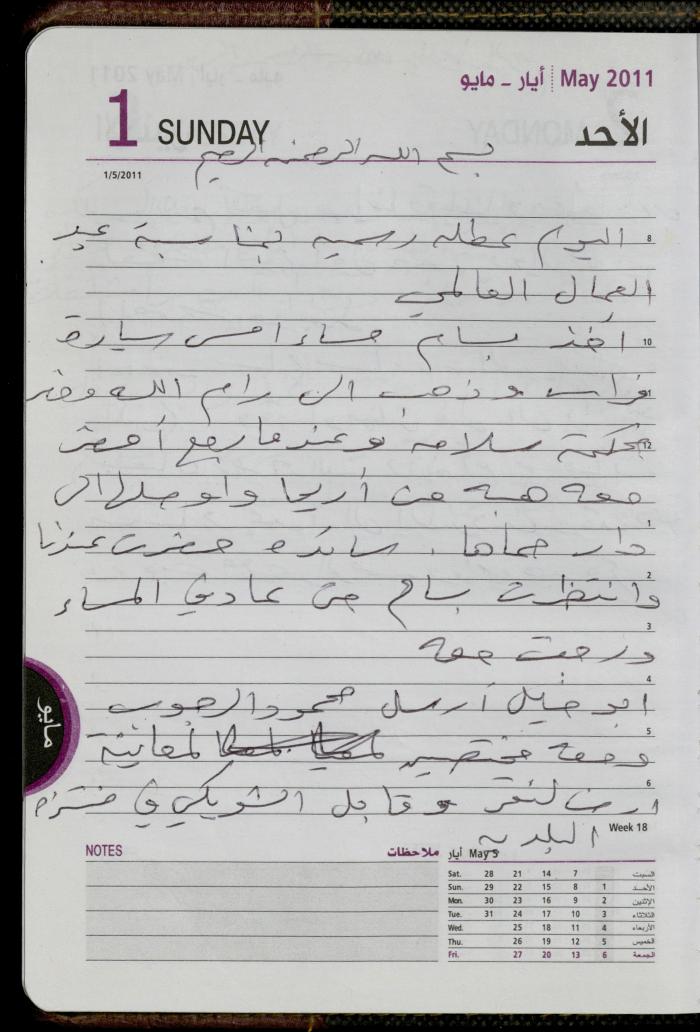 أيار - مايو May 2011
1 SUNDAY الأحد
بسم الله الرحمن الرحيم
1/5/2011
8 اليوم عطله رسميه بمناسبة عيد
العمال العالمي
10 أخذ بسام مساء امس سيارة
11 وذهب الى رام الله
12 محكمة سلامه وعندما رجع أحضر
معه هبه من أريحا واوصلها الى
1 دار حماها . سائده حضرت عندنا
2 وانتظرت بسام حتى عاد في المساء
3 ورجعت معه
4 ابو خليل أرسل محمود الرجوب
5 ومعه مختصين لمعاينة
6 ارض لنقر و قابل الشويكي في منتزه
البلديه
Week 18
مايو
NOTES ملاحظات
أيار May 5
Sat. 28 21 14 7 السبت
Sun. 29 22 15 8 1 الأحد
Mon. 30 23 16 9 2 الإثنين
Tue. 31 24 17 10 3 الثلاثاء
Wed. 25 18 11 4 الأربعاء
Thu. 26 19 12 5 الخميس
Fri. 27 20 13 6 الجمعة